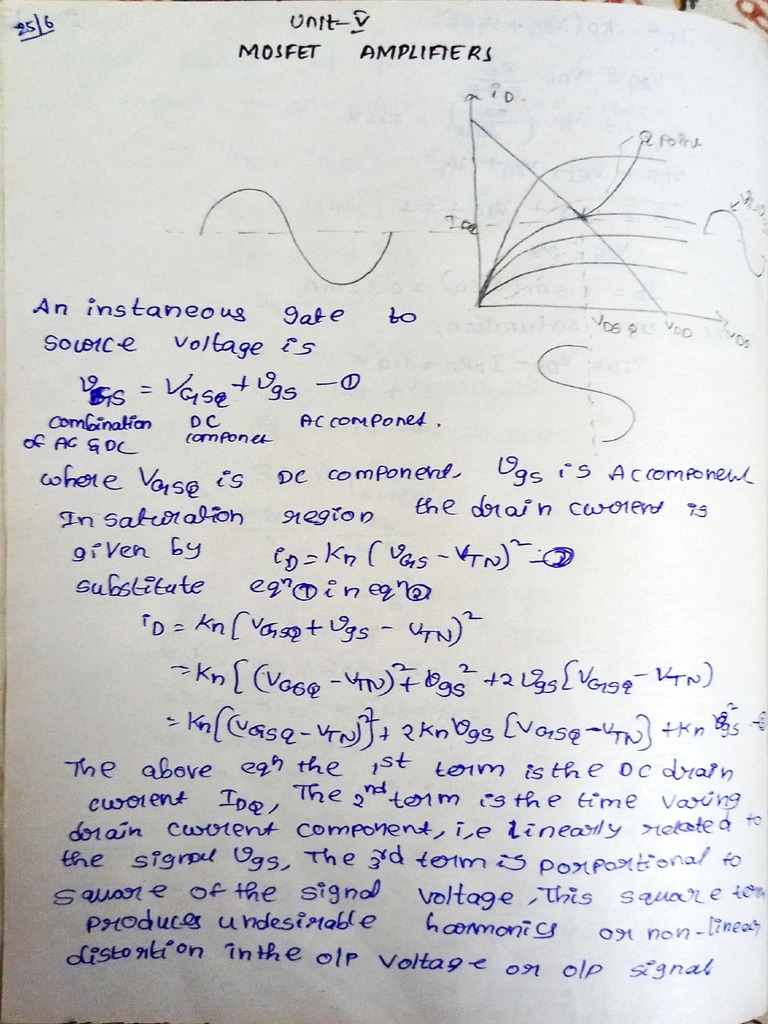 25/6
Unit-V
MOSFET AMPLIFIERS
iD
Q point
IDQ
VDSQ VDD VDS
An instaneous gate to
source voltage is
vGS = VGSQ + vgs - ①
combination DC AC componet.
of AC & DC componet
where VGSQ is DC component, vgs is AC component
In saturation region the drain current is
given by iD = Kn (vGS - VTN)² - ②
substitute eqn ① in eqn ②
iD = Kn (VGSQ + vgs - VTN)²
= Kn [(VGSQ - VTN)² + vgs² + 2vgs [VGSQ - VTN)
= Kn [(VGSQ - VTN)²] + 2Kn vgs [VGSQ - VTN] + Kn vgs²
The above eqn the 1st term is the DC drain
current IDQ, The 2nd term is the time varing
drain current component, i,e linearly related to
the signal vgs, The 3rd term is porportional to
square of the signal voltage, This square term
produces undesirable harmonics or non-linear
distortion in the o/p voltage or o/p signal